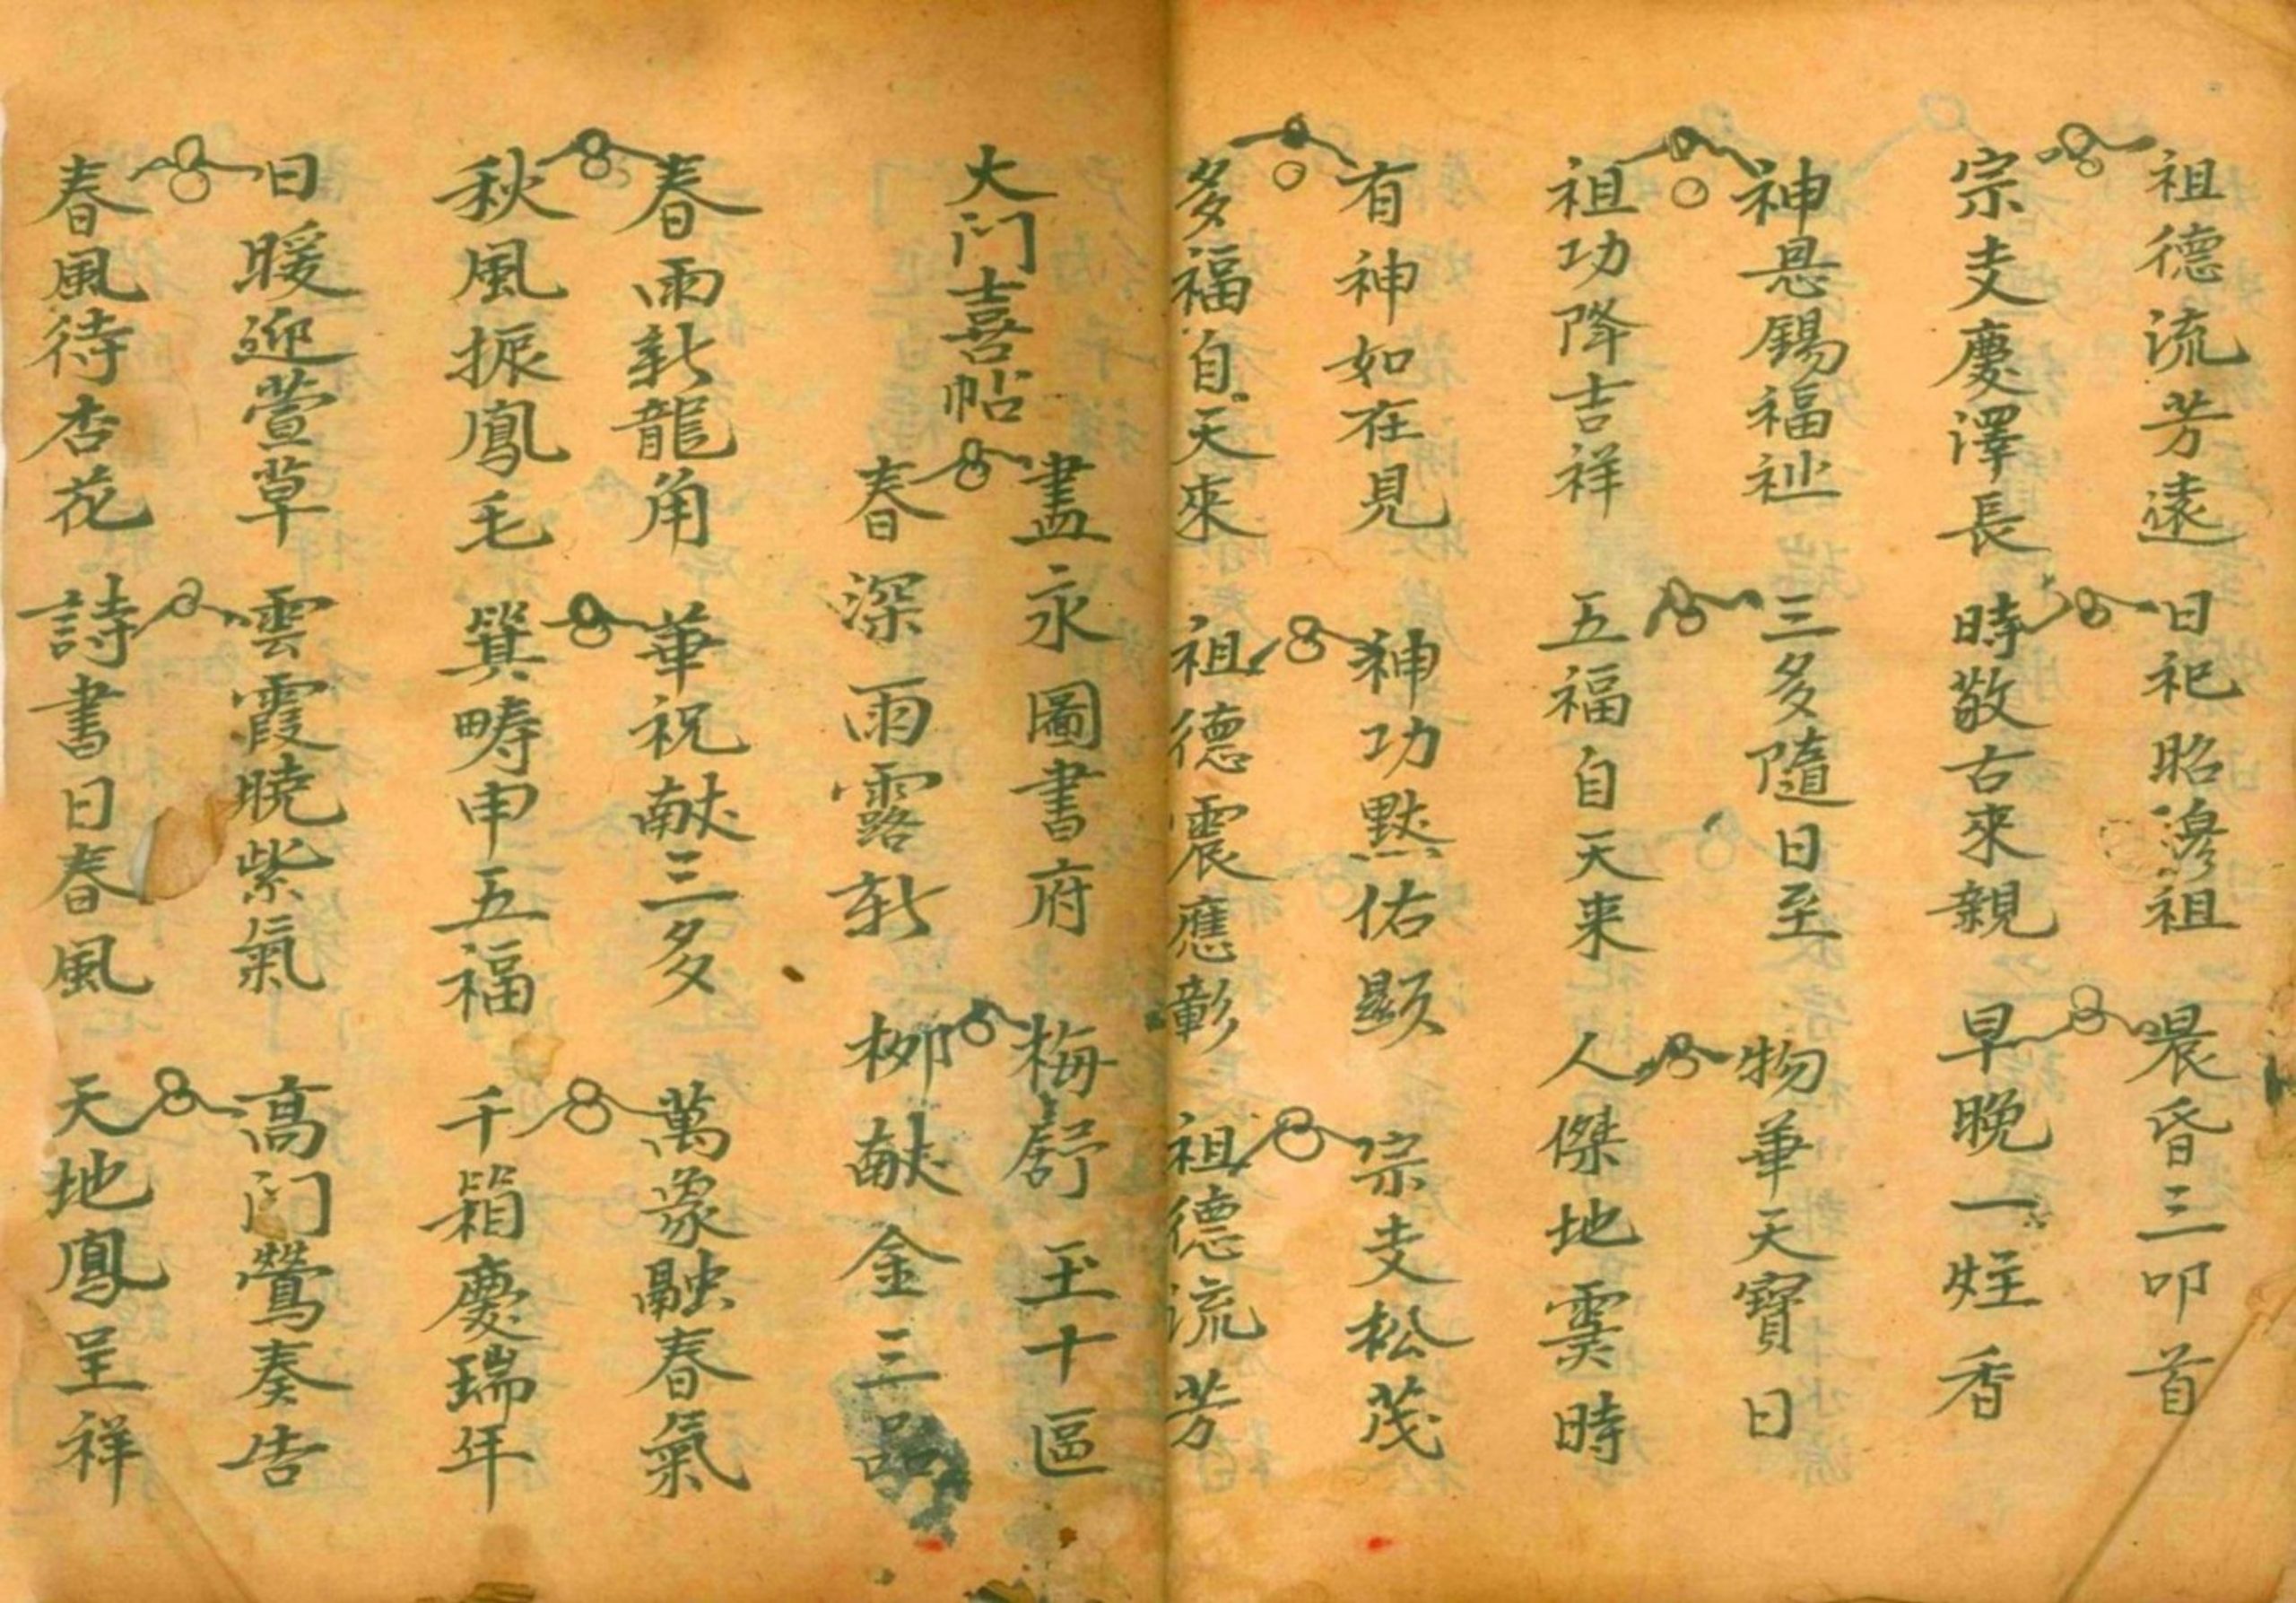 祖德流芳遠 日祀昭滲祖 晨昏三叩首
宗支慶澤長 時敬古來親 早晚一炷香
神恩錫福祉 三多隨日至 物華天寶日
祖功降吉祥 五福自天来 人傑地靈時
有神如在見 神功默佑顯 宗支松茂
多福自天來 祖德震應彰 祖德流芳
大门喜帖
畫永圖書府 梅舒玉十區
春深雨露新 柳献金三品
春雨新龍角 華祝献三多 萬象融春氣
秋風振鳳毛 箕畴申五福 千箱慶瑞年
日暖迎萱草 雲霞曉紫氣 高门鶯奏吿
春風待杏花 詩書日春風 天地鳳呈祥